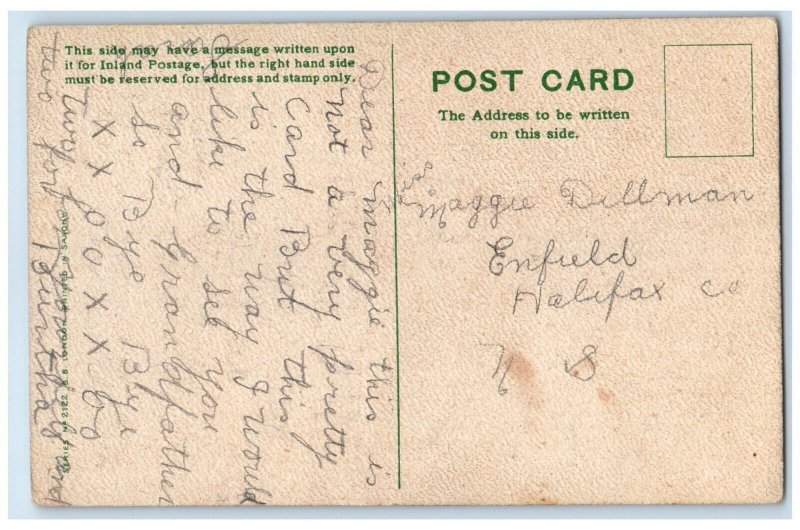 This side may have a message written upon
it for Inland Postage, but the right hand side
must be reserved for address and stamp only.
POST CARD
The Address to be written
on this side.
Dear Maggie this is
not a very pretty
Card But this
is the way I would
like to see you
and Grandfather
so Bye Bye
X X O O X X
two for
Miss Maggie Dillman
Enfield
Halifax Co
N S
SERIES No 2122 B.B. LONDON PRINTED IN SAXONY